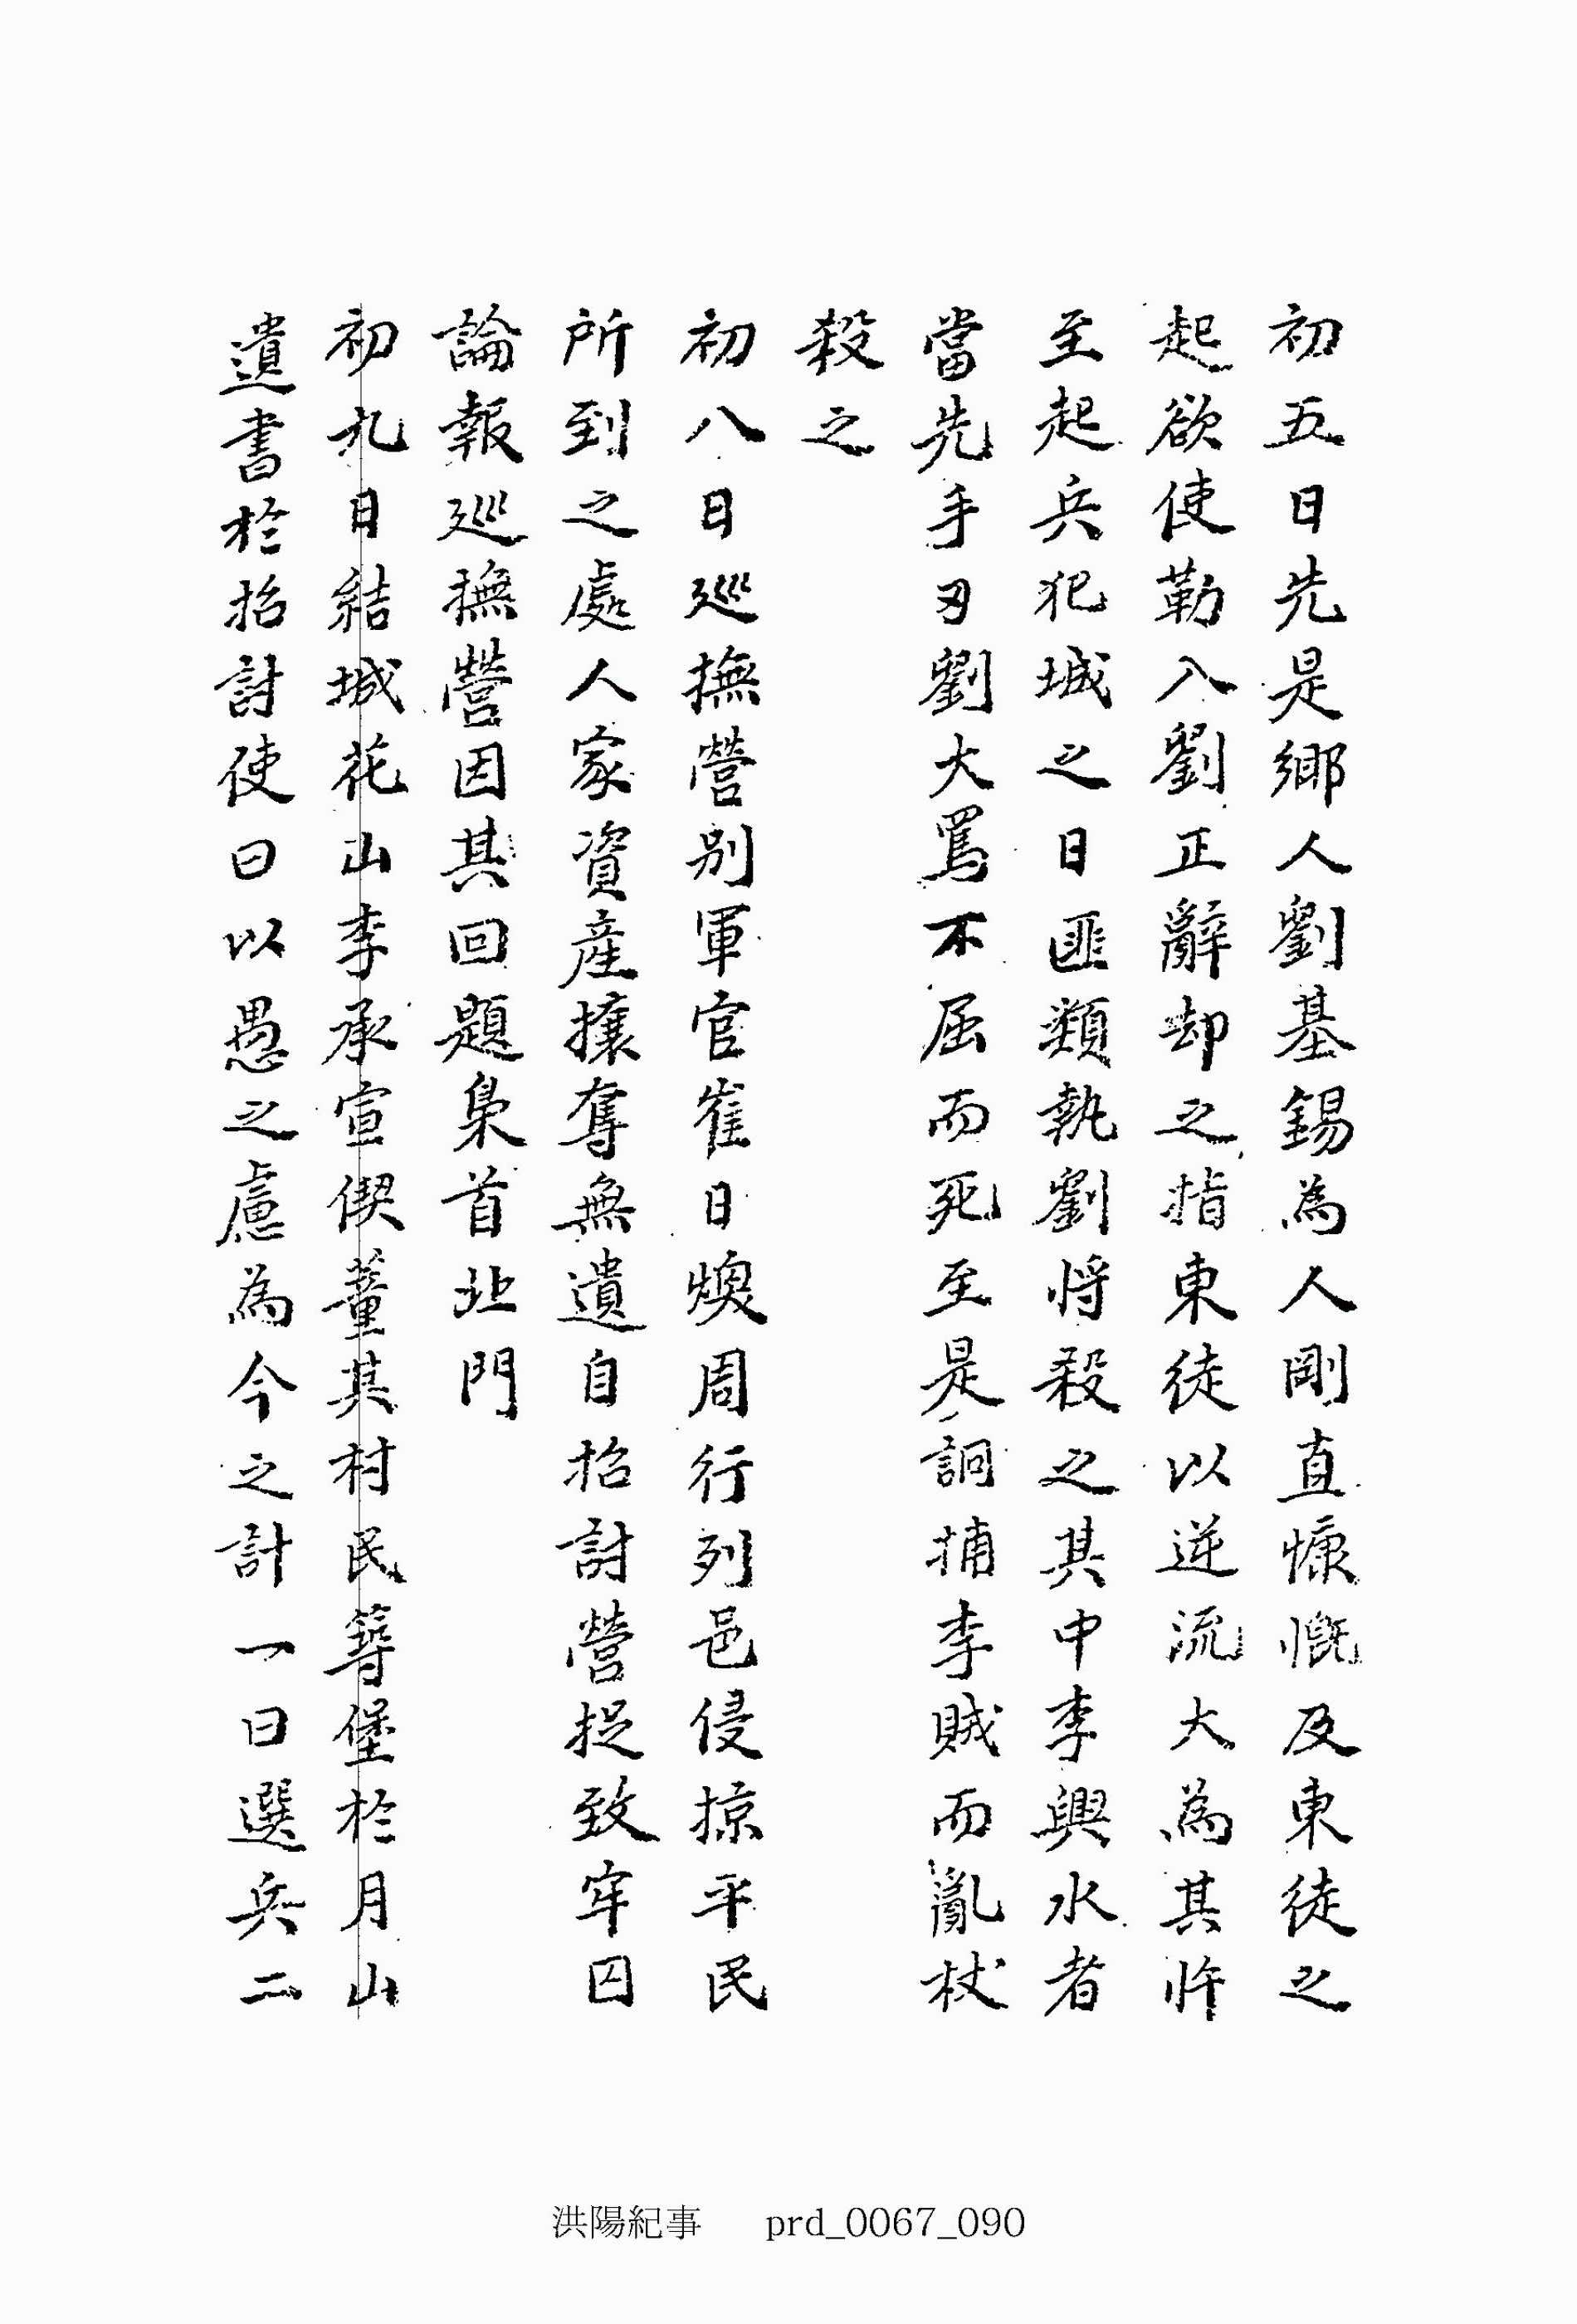 初五日先是鄕人劉基錫為人剛直慷慨及東徒之
起欲使勒入劉正辭却之指東徒以逆流大為其忤
至起兵犯城之日匪類執劉將殺之其中李興水者
當先手刃劉大罵不屈而死至是詗捕李賊而亂杖
殺之
初八日巡撫營別軍官崔日煥周行列邑侵掠平民
所到之處人家資産攘奪無遺自招討營捉致牢囚
論報巡撫營因其回題梟首北門
初九日結城花山李承宣偰董其村民築堡於月山
遺書於招討使曰以愚之慮為今之計一曰選兵二
洪陽紀事 prd_0067_090